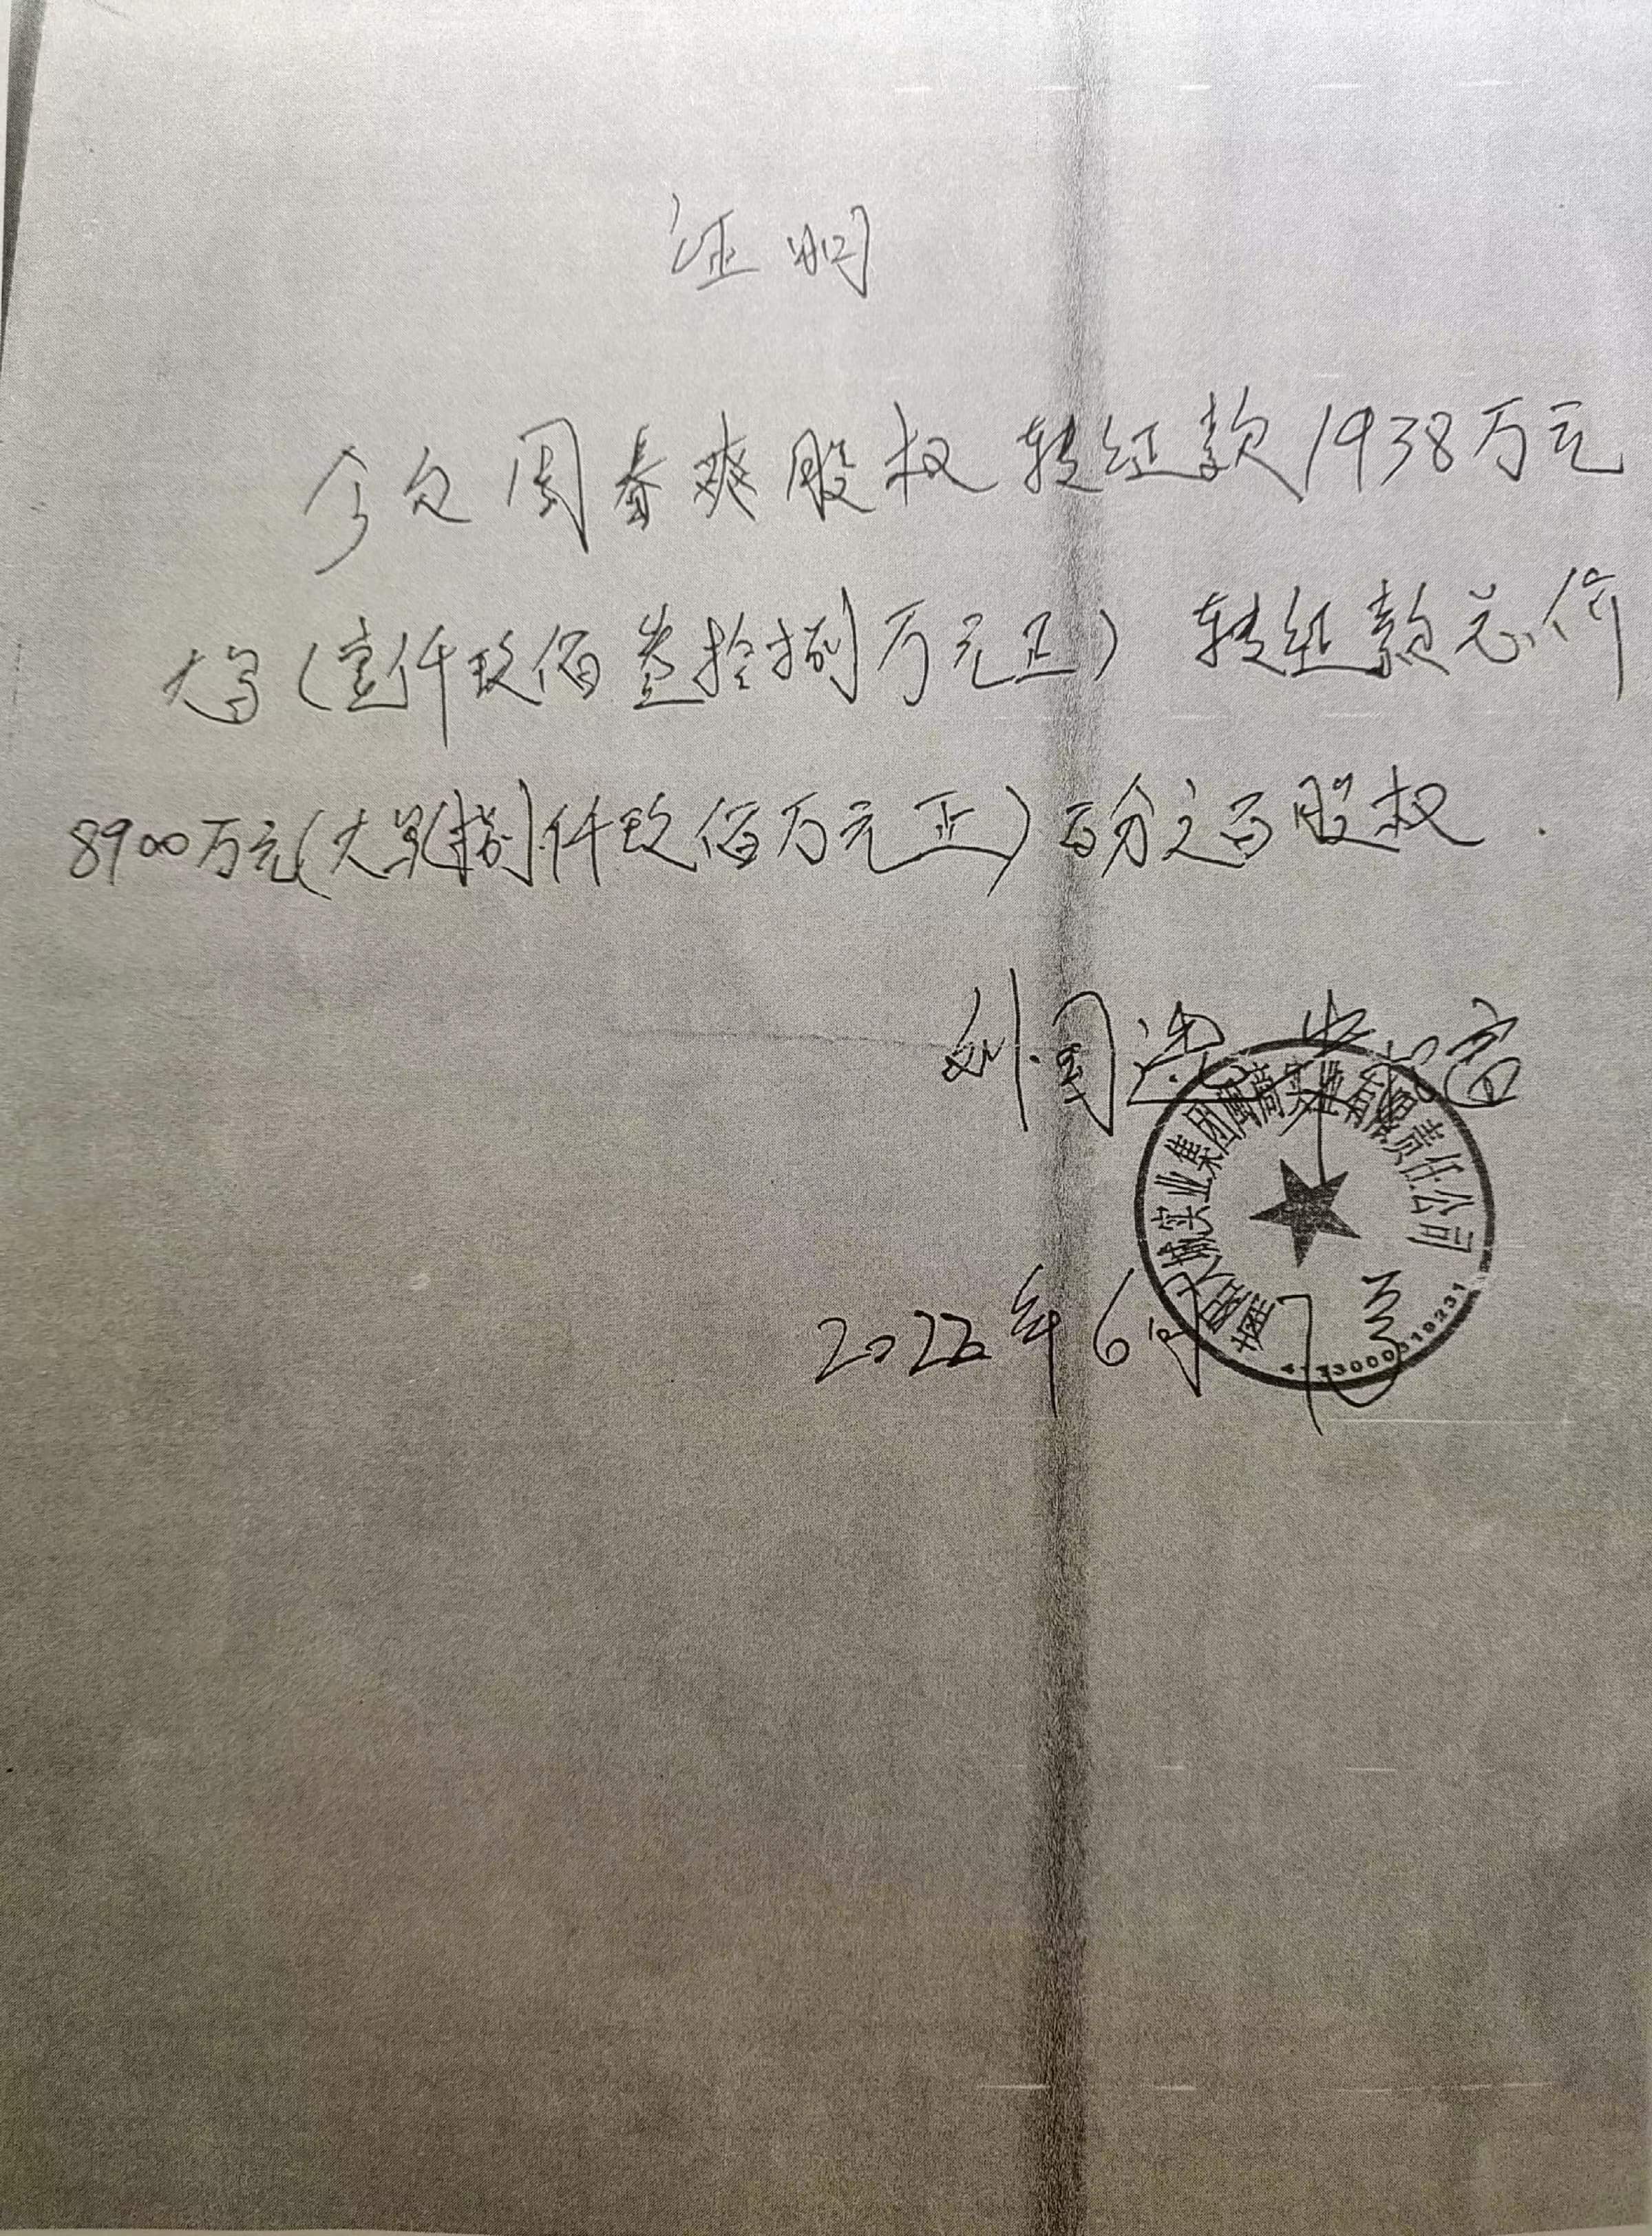 证明
今欠周春爽股权转让款1938万元
大写(壹仟玖佰叁拾捌万元正)转让款总价
8900万元(大写捌仟玖佰万元正)百分之百股权.
刘国
实业集团 实业有限责任公司
2022年6月7号